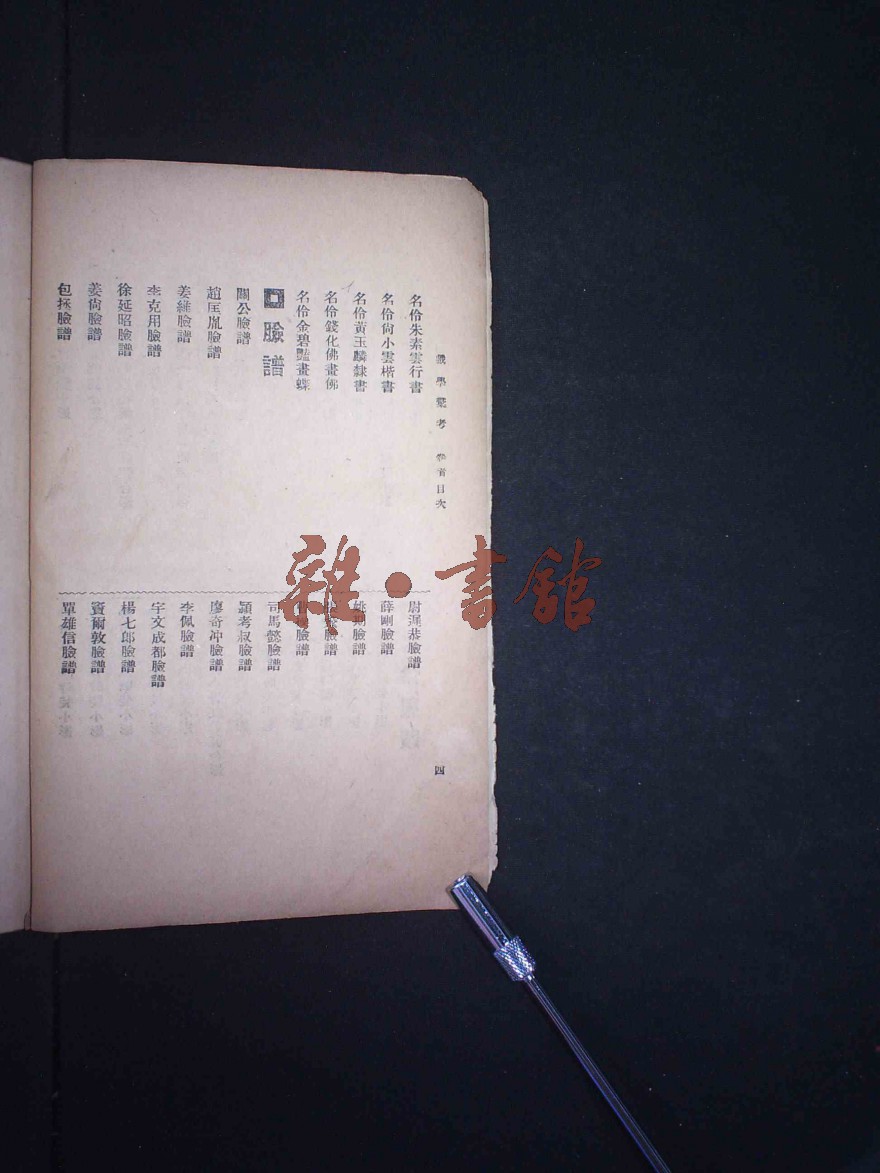 戲學彙考　卷首目次
四
名伶朱素雲行書
名伶尙小雲楷書
名伶黃玉麟隸書
名伶錢化佛畫佛
名伶金碧豔畫蝶
臉譜
關公臉譜
趙匡胤臉譜
姜維臉譜
李克用臉譜
徐延昭臉譜
姜尙臉譜
包拯臉譜
尉遲恭臉譜
薛剛臉譜
姚期臉譜
臉譜
臉譜
司馬懿臉譜
潁考叔臉譜
廖奇冲臉譜
李佩臉譜
宇文成都臉譜
楊七郎臉譜
竇爾敦臉譜
單雄信臉譜
雜·書館